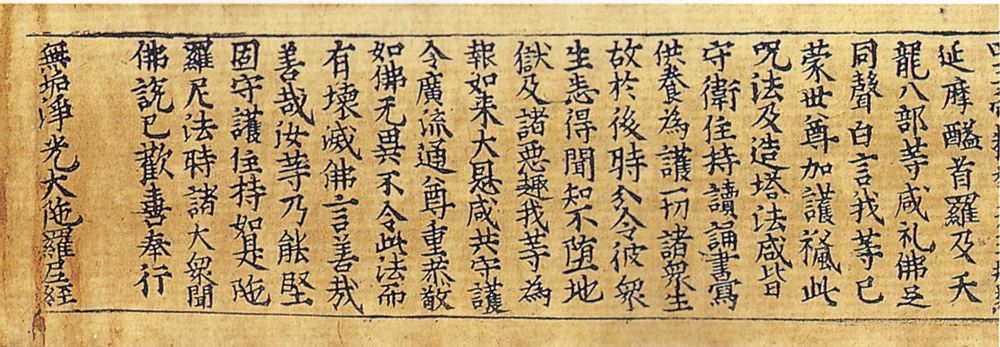 延摩醯首羅及天
龍八部等咸礼佛足
同聲白言我等已
蒙世尊加護𥠢此
呪法及造塔法咸皆
守衛住持讀誦書寫
供養為護一切諸衆生
故於後時分令彼衆
生悉得聞知不墮地
獄及諸惡趣我等為
報如来大恩咸共守護
令廣流通尊重恭敬
如佛无異不令此法而
有壞滅佛言善哉
善哉汝等乃能堅
固守護住持如是陁
羅尼法時諸大衆聞
佛說已歡喜奉行
無垢淨光大陁羅尼經